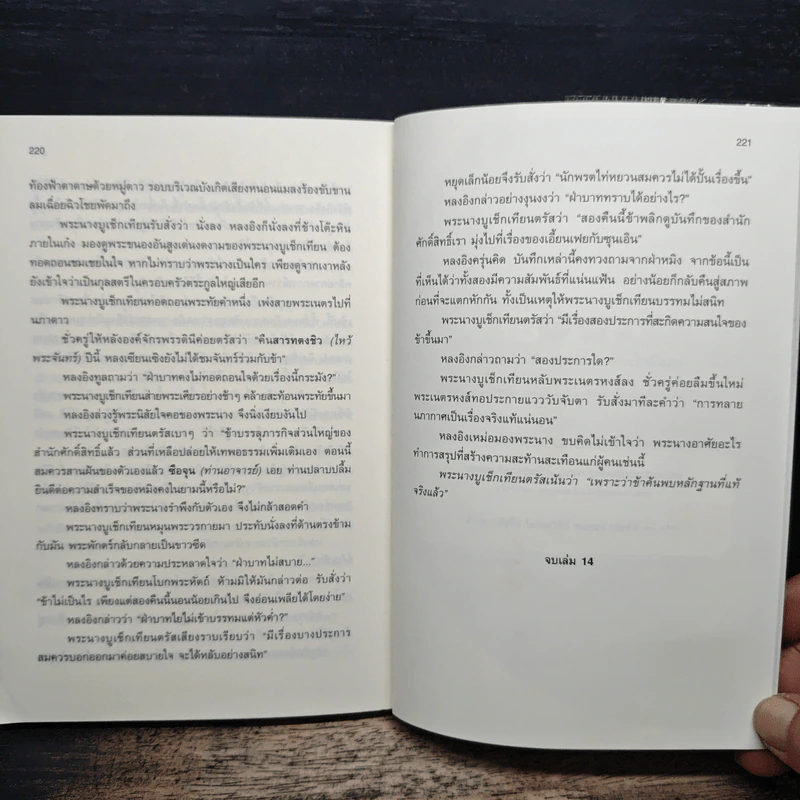 220
ท้องฟ้าดาดาษด้วยหมู่ดาว รอบบริเวณบังเกิดเสียงหนอนแมลงร้องขับขาน
ลมเฉื่อยฉิวโชยพัดมาถึง
พระนางบูเช็กเทียนรับสั่งว่า นั่งลง หลงอิงก็นั่งลงที่ข้างโต๊ะหิน
ภายในเก๋ง มองดูพระขนองอันสูงเด่นงดงามของพระนางบูเช็กเทียน ต้อง
ทอดถอนชมเชยในใจ หากไม่ทราบว่าพระนางเป็นใคร เพียงดูจากเงาหลัง
ยังเข้าใจว่าเป็นกุลสตรีในครอบครัวตระกูลใหญ่เสียอีก
พระนางบูเช็กเทียนทอดถอนพระทัยคำหนึ่ง เพ่งสายพระเนตรไปที่
นภาดาว
ชั่วครู่ให้หลังองค์จักรพรรดินีค่อยตรัสว่า “คืนสารทตงชิว (ไหว้
พระจันทร์) ปีนี้ หลงเซียนเซิงยังไม่ได้ชมจันทร์ร่วมกับข้า”
หลงอิงทูลถามว่า “ฝ่าบาทคงไม่ทอดถอนใจด้วยเรื่องนี้กระมัง?”
พระนางบูเช็กเทียนส่ายพระเศียรอย่างช้าๆ คล้ายสะท้อนพระทัยขึ้นมา
หลงอิงล่วงรู้พระนิสัยใจคอของพระนาง จึงนิ่งเงียบงันไป
พระนางบูเช็กเทียนตรัสเบาๆ ว่า “ข้าบรรลุภารกิจส่วนใหญ่ของ
สำนักศักดิ์สิทธิ์แล้ว ส่วนที่เหลือปล่อยให้เทพอธรรมเพิ่มเติมเอง ตอนนี้
สมควรสานฝันของตัวเองแล้ว ซือจุน (ท่านอาจารย์) เอย ท่านปลาบปลื้ม
ยินดีต่อความสำเร็จของหมิงคงในยามนี้หรือไม่?”
หลงอิงทราบว่าพระนางรำพึงกับตัวเอง จึงไม่กล้าสอดคำ
พระนางบูเช็กเทียนหมุนพระวรกายมา ประทับนั่งลงที่ด้านตรงข้าม
กับมัน พระพักตร์กลับกลายเป็นขาวซีด
หลงอิงกล่าวด้วยความประหลาดใจว่า “ฝ่าบาทไม่สบาย...”
พระนางบูเช็กเทียนโบกพระหัตถ์ ห้ามมิให้มันกล่าวต่อ รับสั่งว่า
“ข้าไม่เป็นไร เพียงแต่สองคืนนี้นอนน้อยเกินไป จึงอ่อนเพลียได้โดยง่าย”
หลงอิงกล่าวว่า “ฝ่าบาทไยไม่เข้าบรรทมแต่หัวค่ำ?”
พระนางบูเช็กเทียนตรัสเสียงราบเรียบว่า “มีเรื่องบางประการ
สมควรบอกออกมาค่อยสบายใจ จะได้หลับอย่างสนิท”
221
หยุดเล็กน้อยจึงรับสั่งว่า “นักพรตไท่หยวนสมควรไม่ได้ปั้นเรื่องขึ้น”
หลงอิงกล่าวอย่างงุนงงว่า “ฝ่าบาททราบได้อย่างไร?”
พระนางบูเช็กเทียนตรัสว่า “สองคืนนี้ข้าพลิกดูบันทึกของสำนัก
ศักดิ์สิทธิ์เรา มุ่งไปที่เรื่องของเอี้ยนเฟยกับซุนเอิน”
หลงอิงครุ่นคิด บันทึกเหล่านี้คงทวงถามจากฝ่าหมิง จากข้อนี้เป็น
ที่เห็นได้ว่าทั้งสองมีความสัมพันธ์ที่แน่นแฟ้น อย่างน้อยก็กลับคืนสู่สภาพ
ก่อนที่จะแตกหักกัน ทั้งเป็นเหตุให้พระนางบูเช็กเทียนบรรทมไม่สนิท
พระนางบูเช็กเทียนตรัสว่า “มีเรื่องสองประการที่สะกิดความสนใจของ
ข้าขึ้นมา”
หลงอิงกล่าวถามว่า “สองประการใด?”
พระนางบูเช็กเทียนหลับพระเนตรหงส์ลง ชั่วครู่ค่อยลืมขึ้นใหม่
พระเนตรหงส์ทอประกายแวววับจับตา รับสั่งมาทีละคำว่า “การทลาย
นภากาศเป็นเรื่องจริงแท้แน่นอน”
หลงอิงเหม่อมองพระนาง ขบคิดไม่เข้าใจว่า พระนางอาศัยอะไร
ทำการสรุปที่สร้างความสะท้านสะเทือนแก่ผู้คนเช่นนี้
พระนางบูเช็กเทียนตรัสเน้นว่า “เพราะว่าข้าค้นพบหลักฐานที่แท้
จริงแล้ว”
จบเล่ม 14